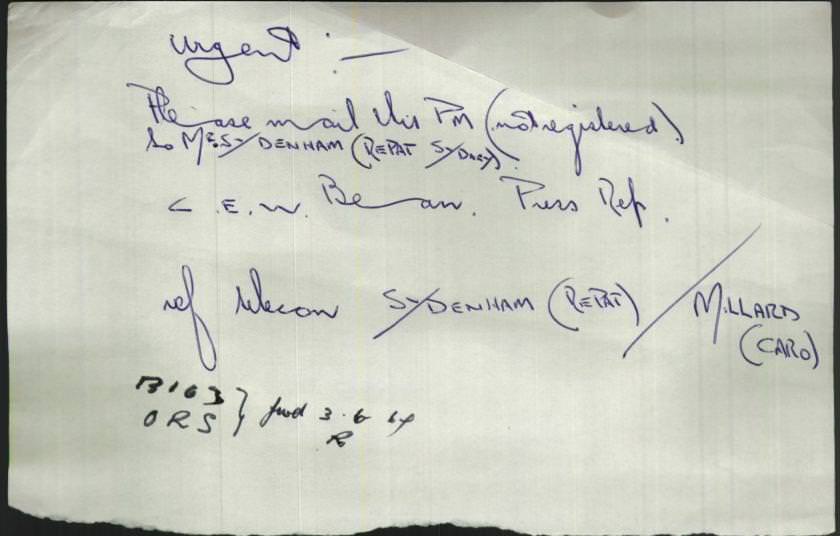 urgent :—
Please mail this PM (not registered)
to Mr SYDENHAM (REPAT SYDNEY).
C.E.W. Bean. Press Rep.
ref telecon SYDENHAM (REPAT) / MILLARD
(CARO)
B103 } fwd 3.6
ORS